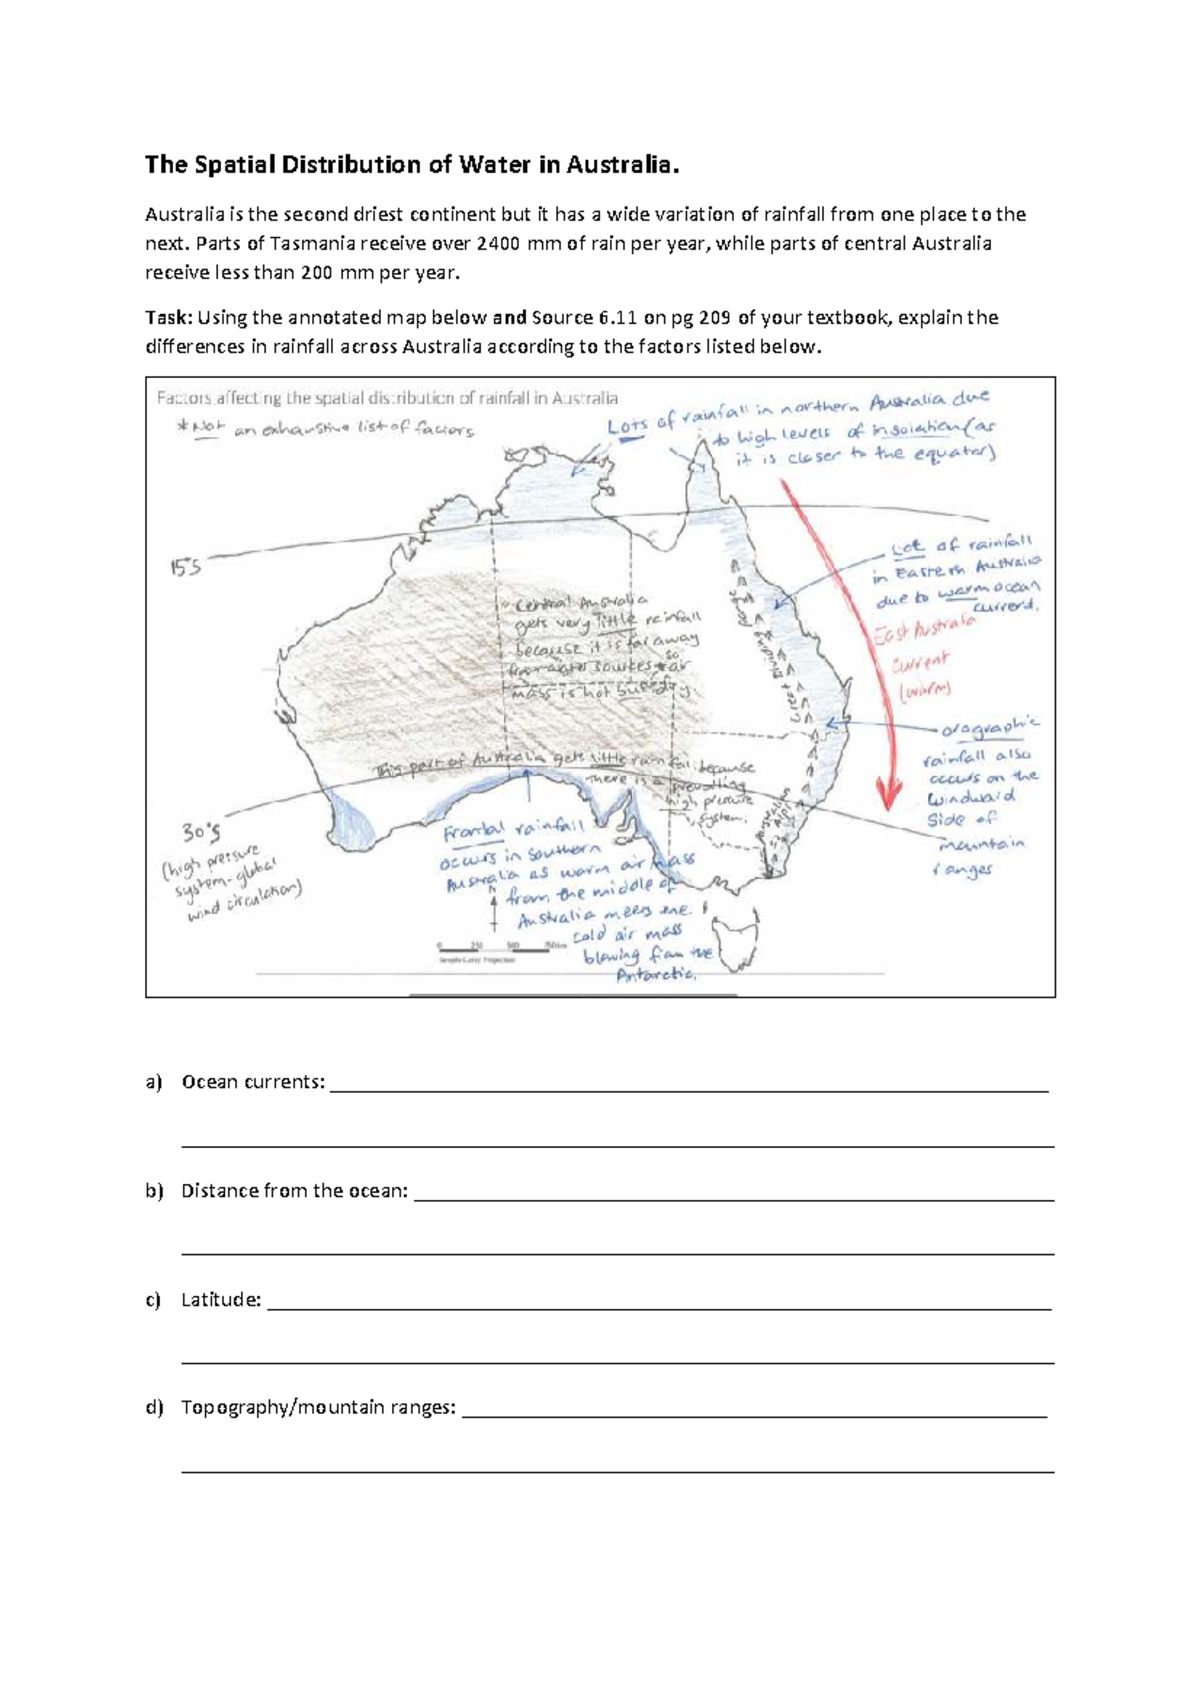 The Spatial Distribution of Water in Australia.
Australia is the second driest continent but it has a wide variation of rainfall from one place to the
next. Parts of Tasmania receive over 2400 mm of rain per year, while parts of central Australia
receive less than 200 mm per year.
Task: Using the annotated map below and Source 6.11 on pg 209 of your textbook, explain the
differences in rainfall across Australia according to the factors listed below.
Factors affecting the spatial distribution of rainfall in Australia
*Not an exhaustive list of factors
Lots of rainfall in northern Australia due
to high levels of insolation (as
it is closer to the equator)
15°S
Lot of rainfall
in Eastern Australia
due to warm ocean
current.
East Australia
Current
(warm)
Central Australia
gets very little rainfall
because it is far away
from water sources so air
mass is not
Great Dividing Range
orographic
rainfall also
occurs on the
windward
side of
mountain
ranges
This part of Australia gets little rainfall because
there is a prevailing
high pressure
system.
Australian Alps
30°S
(high pressure
system-global
wind circulation)
Frontal rainfall
occurs in Southern
Australia as warm air mass
from the middle of
Australia meets the
cold air mass
blowing from the
Antarctic.
N
0 250 500 750km
a) Ocean currents:
b) Distance from the ocean:
c) Latitude:
d) Topography/mountain ranges: